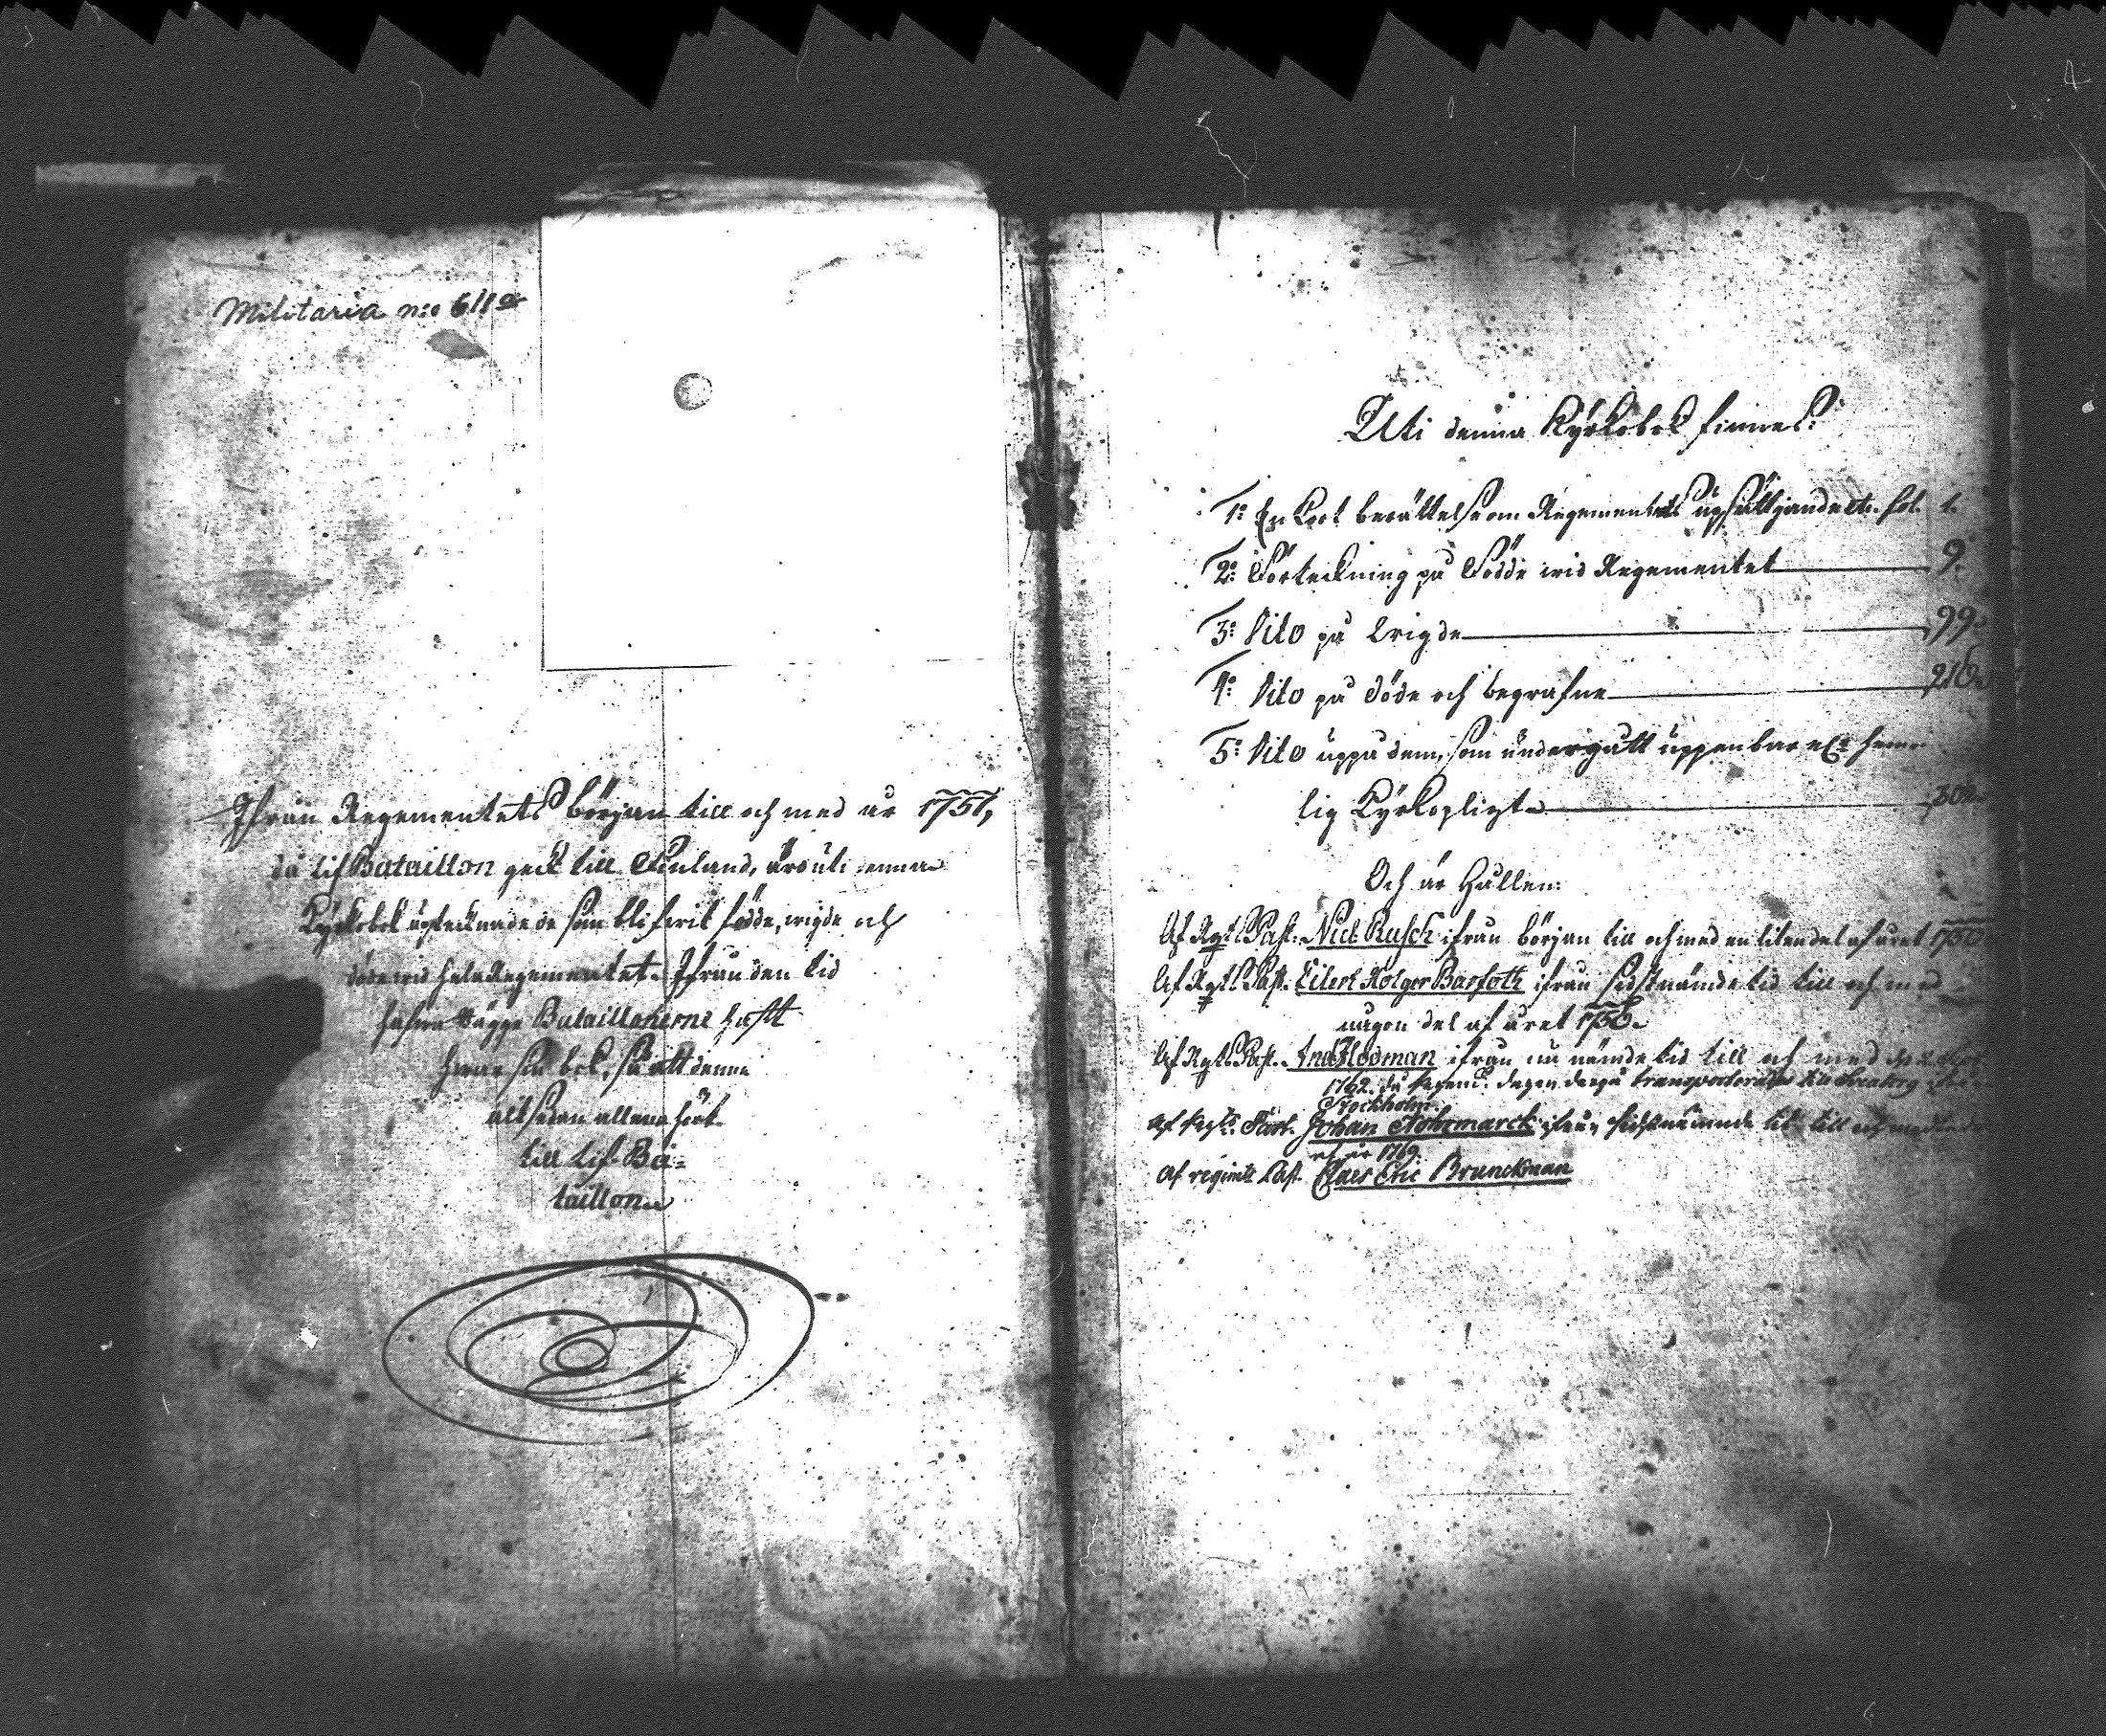 Militaria n:o 611 a
Ifrån Regementets början till och med år 1751,
då Lif Bataillon geck till Finland, äro uti denna
Kyrkobok upteknade de som blifwit födde, wigde och
döde wid hela Regementet. Ifrån den tid
hafwa bägge Bataillonerne haft
hwar sin bok, så att denna
alt sedan allena hört
till Lif-Ba=
taillon.
Uti denna Kyrkobok finnes:
1:o En kort berättelse om Regementets upsättjande etc. fol. 1.
2:o Förteckning på Födde wid Regementet 9.
3:o Dito på Wigde 99.
4:o Dito på döde och begrafne 216.
5:o Dito uppå dem, som undergått uppenbar eller hem-
lig Kyrkopligt 302.
Och är Hållen:
Af Rgts Past. Nicl. Rusch ifrån början till och med en liten del af året 1750
Af Rgts Past. Eilert Holger Barfoth ifrån sidstnämde tid till och med
någon del af året 1756.
Af Rgts Past. And. Hedman ifrån nu nämde tid till och med
1762. då transporterades
Stockholm.
Af Regts Past. Johan Nohrmarck ifrån sidstnämnde tid till och med
af år 1769.
Af regimts Past. Claes Eric Brunckman